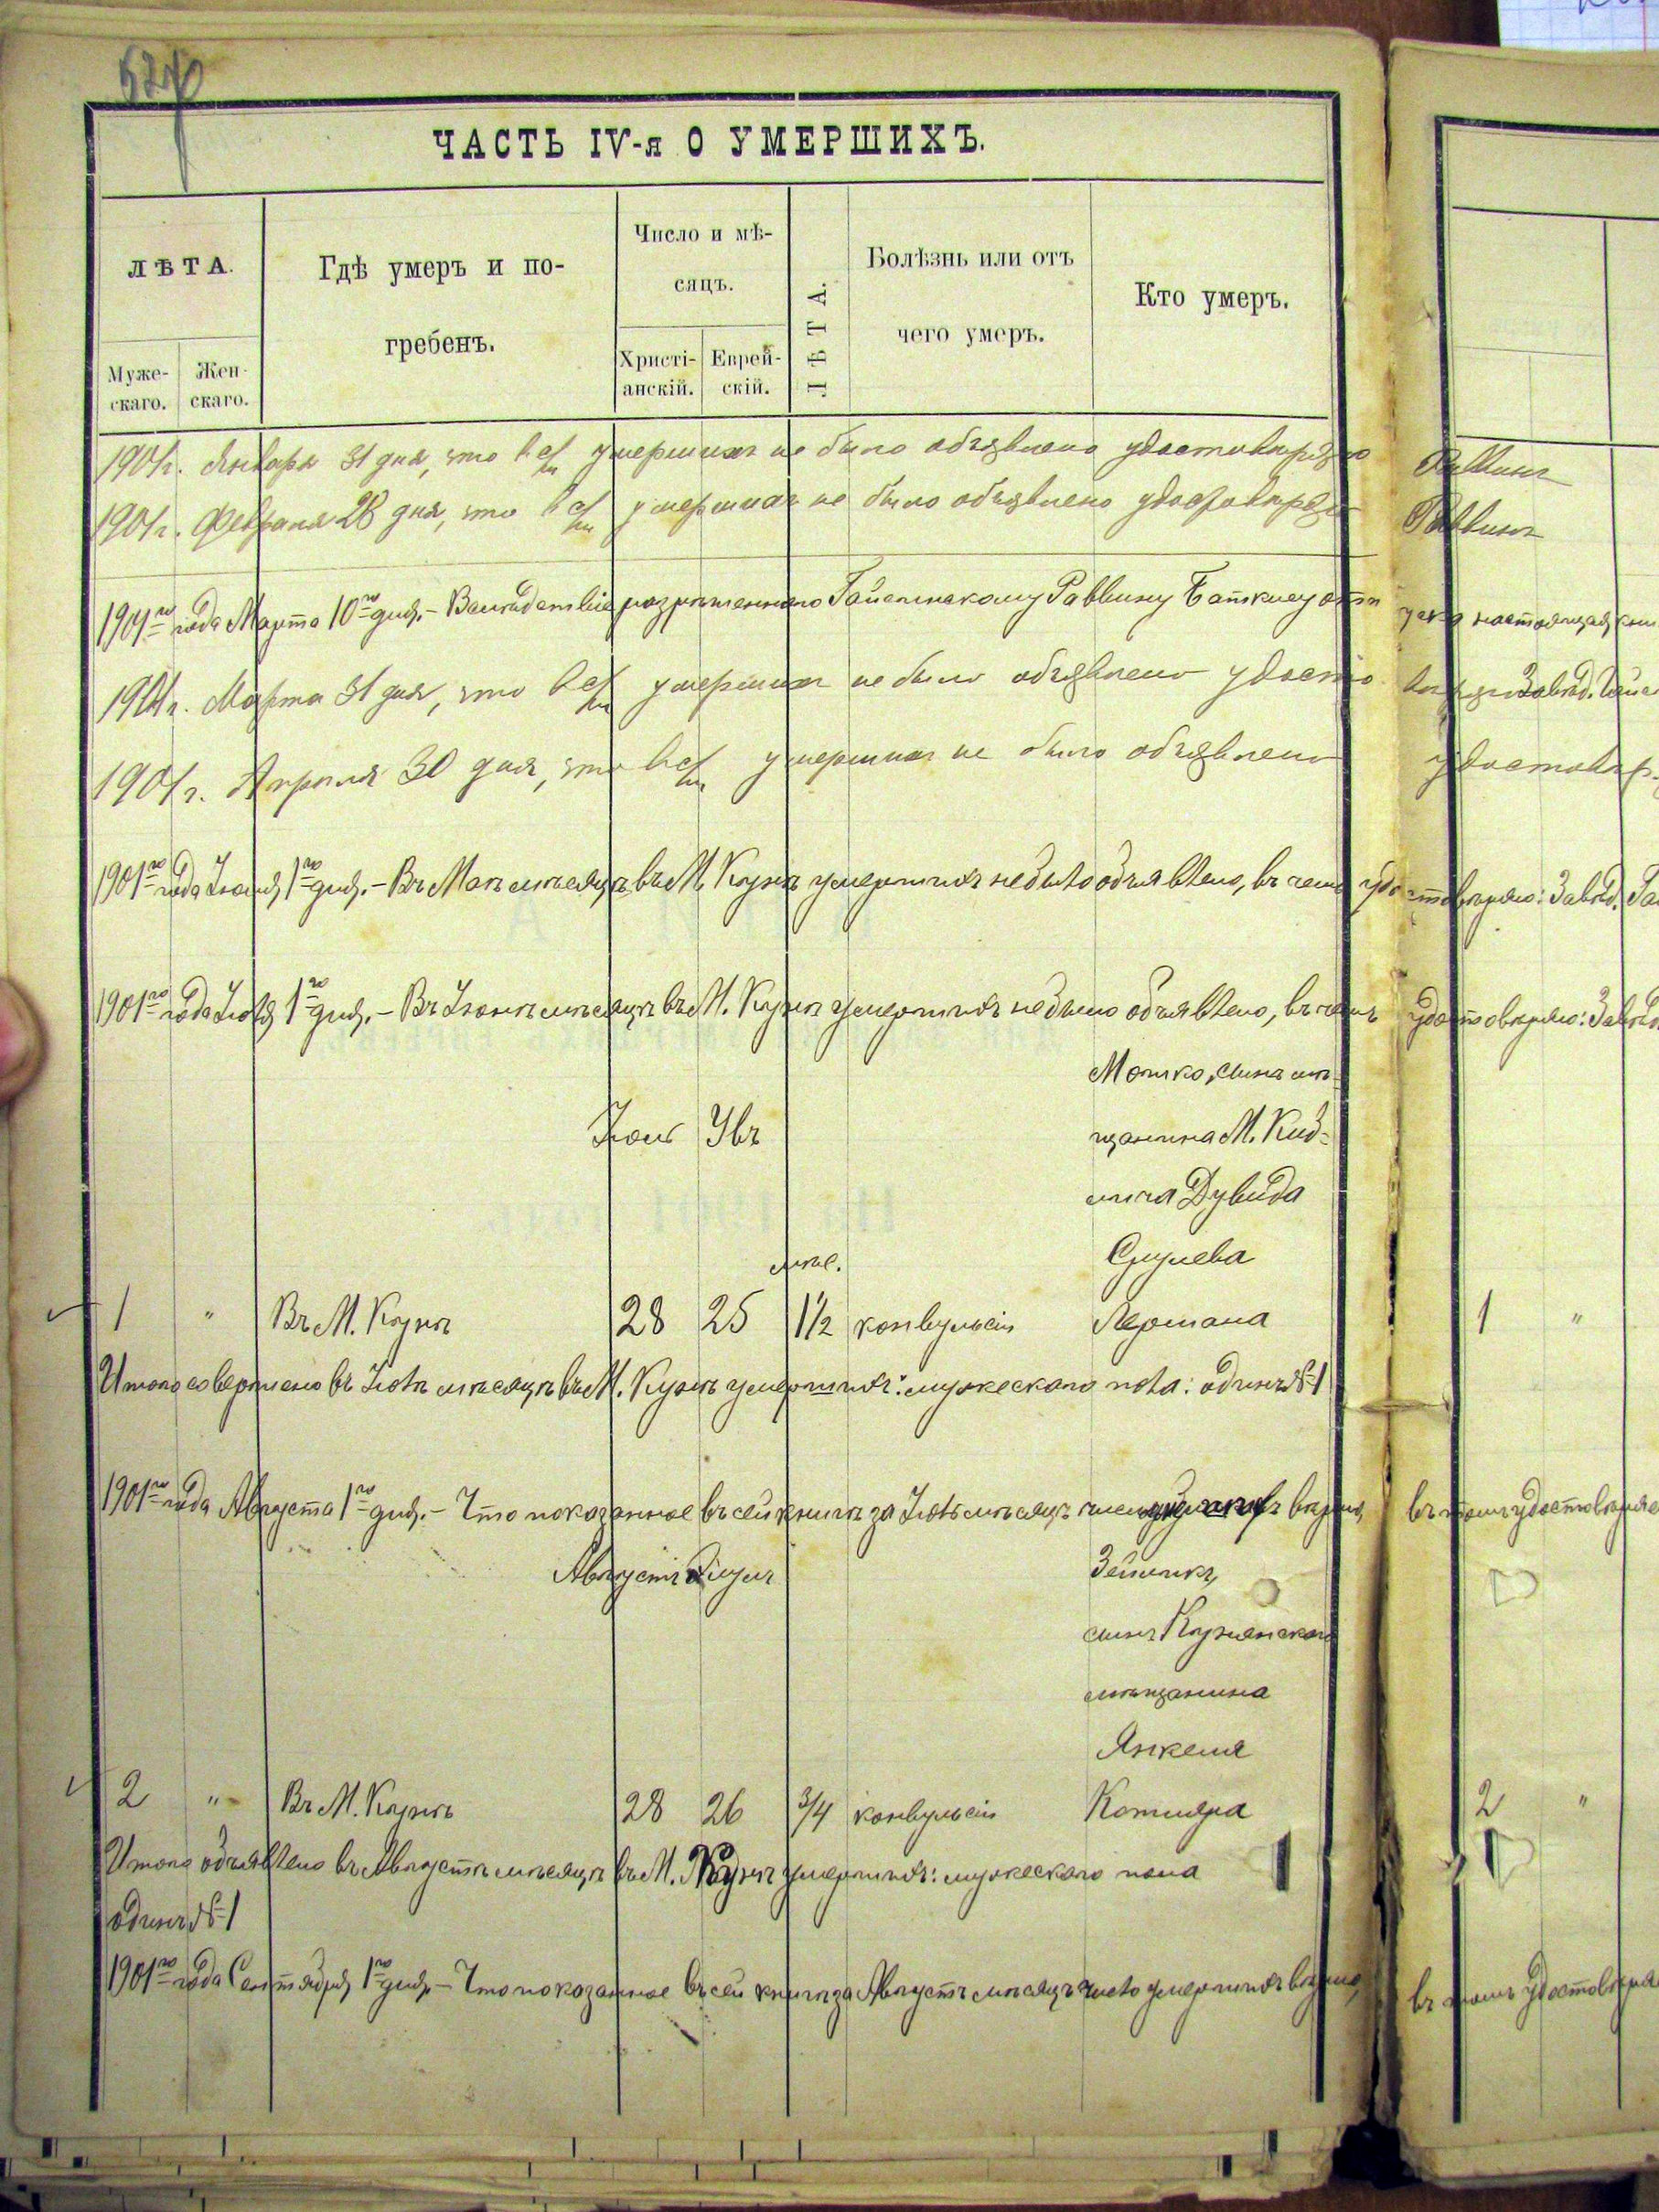 ЧАСТЬ IV-я О УМЕРШИХЪ.
ЛѢТА.
Муже-
скаго.
Жен-
скаго.
Гдѣ умеръ и по-
гребенъ.
Число и мѣ-
сяцъ.
Христі-
анскій.
Еврей-
скій.
ЛѢТА.
Болѣзнь или отъ
чего умеръ.
Кто умеръ.
1901г. Января 31 дня, что умершихъ не было объявлено удостовѣряю Раввинъ
1901г. Февраля 28 дня, что умершихъ не было объявлено удостовѣряю Раввинъ
1901го года Марта 10го дня. – Вслѣдствіе Гайсинскому Раввину настоящая
1901г. Марта 31 дня, что умершихъ не было объявлено удосто
1901г. Апрѣля 30 дня, что умершихъ не было объявлено удостовѣр.
1901го года Іюня 1го дня. – Въ Маѣ мѣсяцѣ въ М. Кунѣ умершихъ не было объявлено, въ чемъ удостовѣряю: Завѣд. Га
1901го года Іюля 1го дня. – Въ Іюнѣ мѣсяцѣ въ М. Кунѣ умершихъ не было объявлено, въ чемъ удостовѣряю: Завѣд.
Мошко, сынъ мѣ-
Іюль Увъ щанина М. Киб-
лича Дувида
Сруля
мѣс.
1 " Въ М. Кунѣ 28 25 1½ конвульсіи Лермана 1 "
Итого совершено въ Іюлѣ мѣсяцѣ въ М. Кунѣ умершихъ: мужескаго пола: одинъ №1
1901го года Августа 1го дня. – Что показанное въ сей книгѣ за Іюль мѣсяцъ число вѣрно, въ томъ удостовѣряю
Августъ Элулъ
сынъ Кунянскаго
мѣщанина
Янкеля
2 " Въ М. Кунѣ 28 26 3/4 конвульсіи Котляра 2 "
Итого объявлено въ Августѣ мѣсяцѣ въ М. Кунѣ умершихъ: мужескаго пола
одинъ №1
1901го года Сентября 1го дня. – Что показанное въ сей книгѣ за Августъ мѣсяцъ число умершихъ вѣрно, въ томъ удостовѣряю